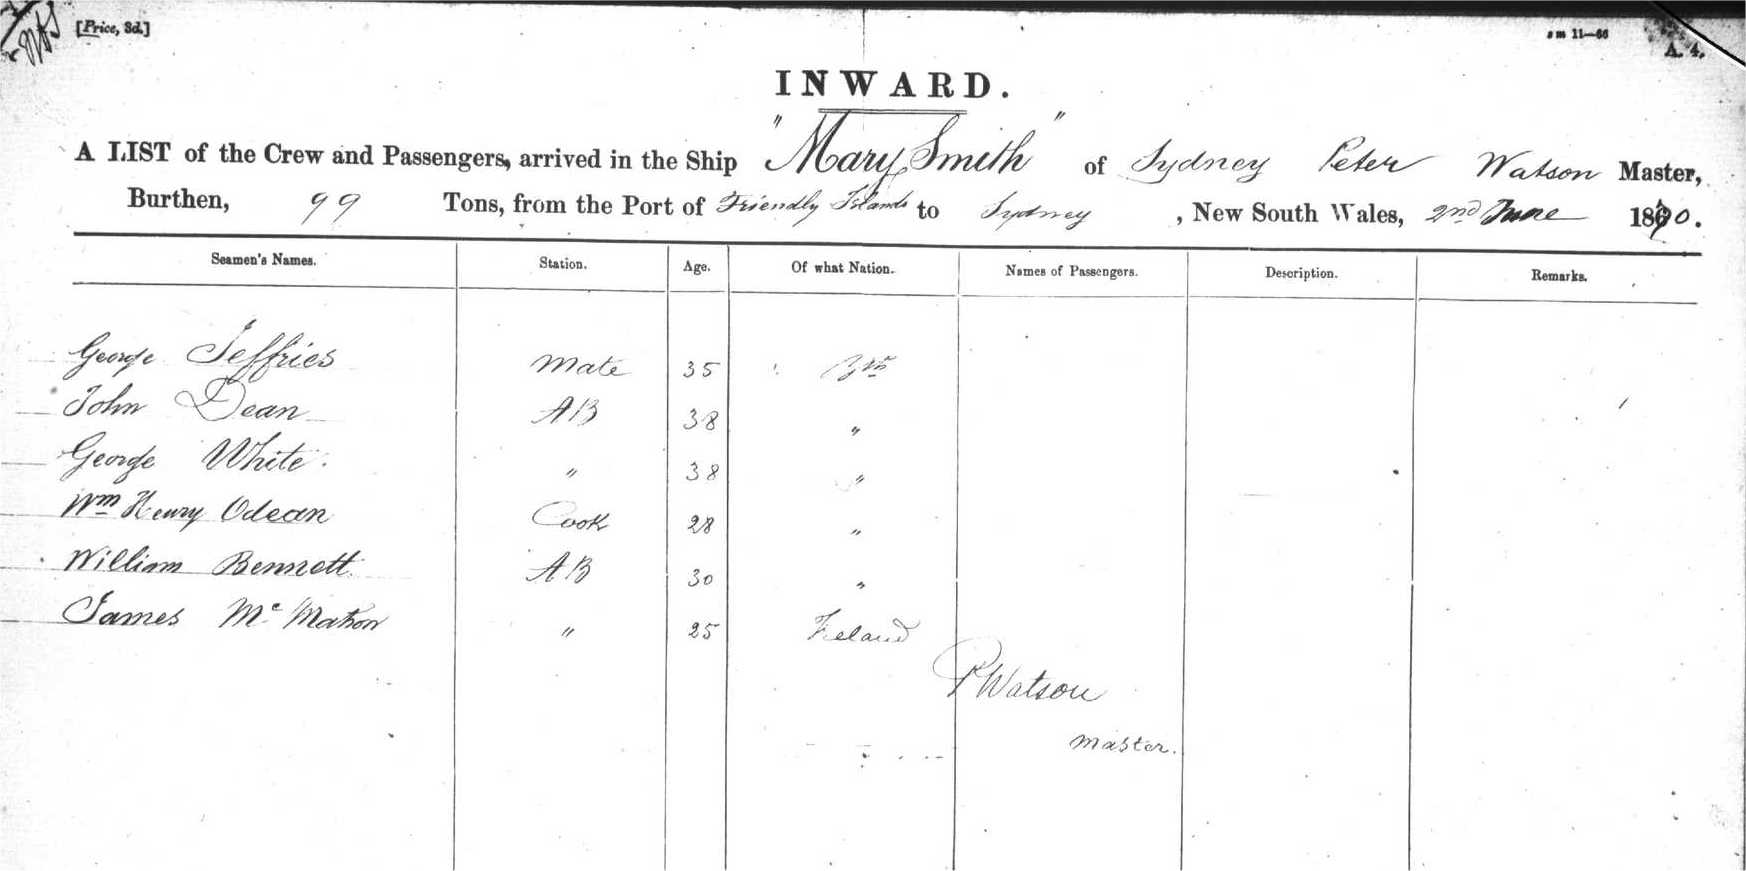 [Price, 3d.]
A. 4.
INWARD.
A LIST of the Crew and Passengers, arrived in the Ship "Mary Smith" of Sydney Peter Watson Master,
Burthen, 99 Tons, from the Port of Friendly Islands to Sydney, New South Wales, 2nd June 1870.
Seamen's Names. Station. Age. Of what Nation. Names of Passengers. Description. Remarks.
George Jeffries Mate 35
John Dean AB 38 "
George White. " 38 "
Wm Henry Odean Cook 28 "
William Bennett AB 30 "
James McMahon " 25 Ireland
P Watson
Master.